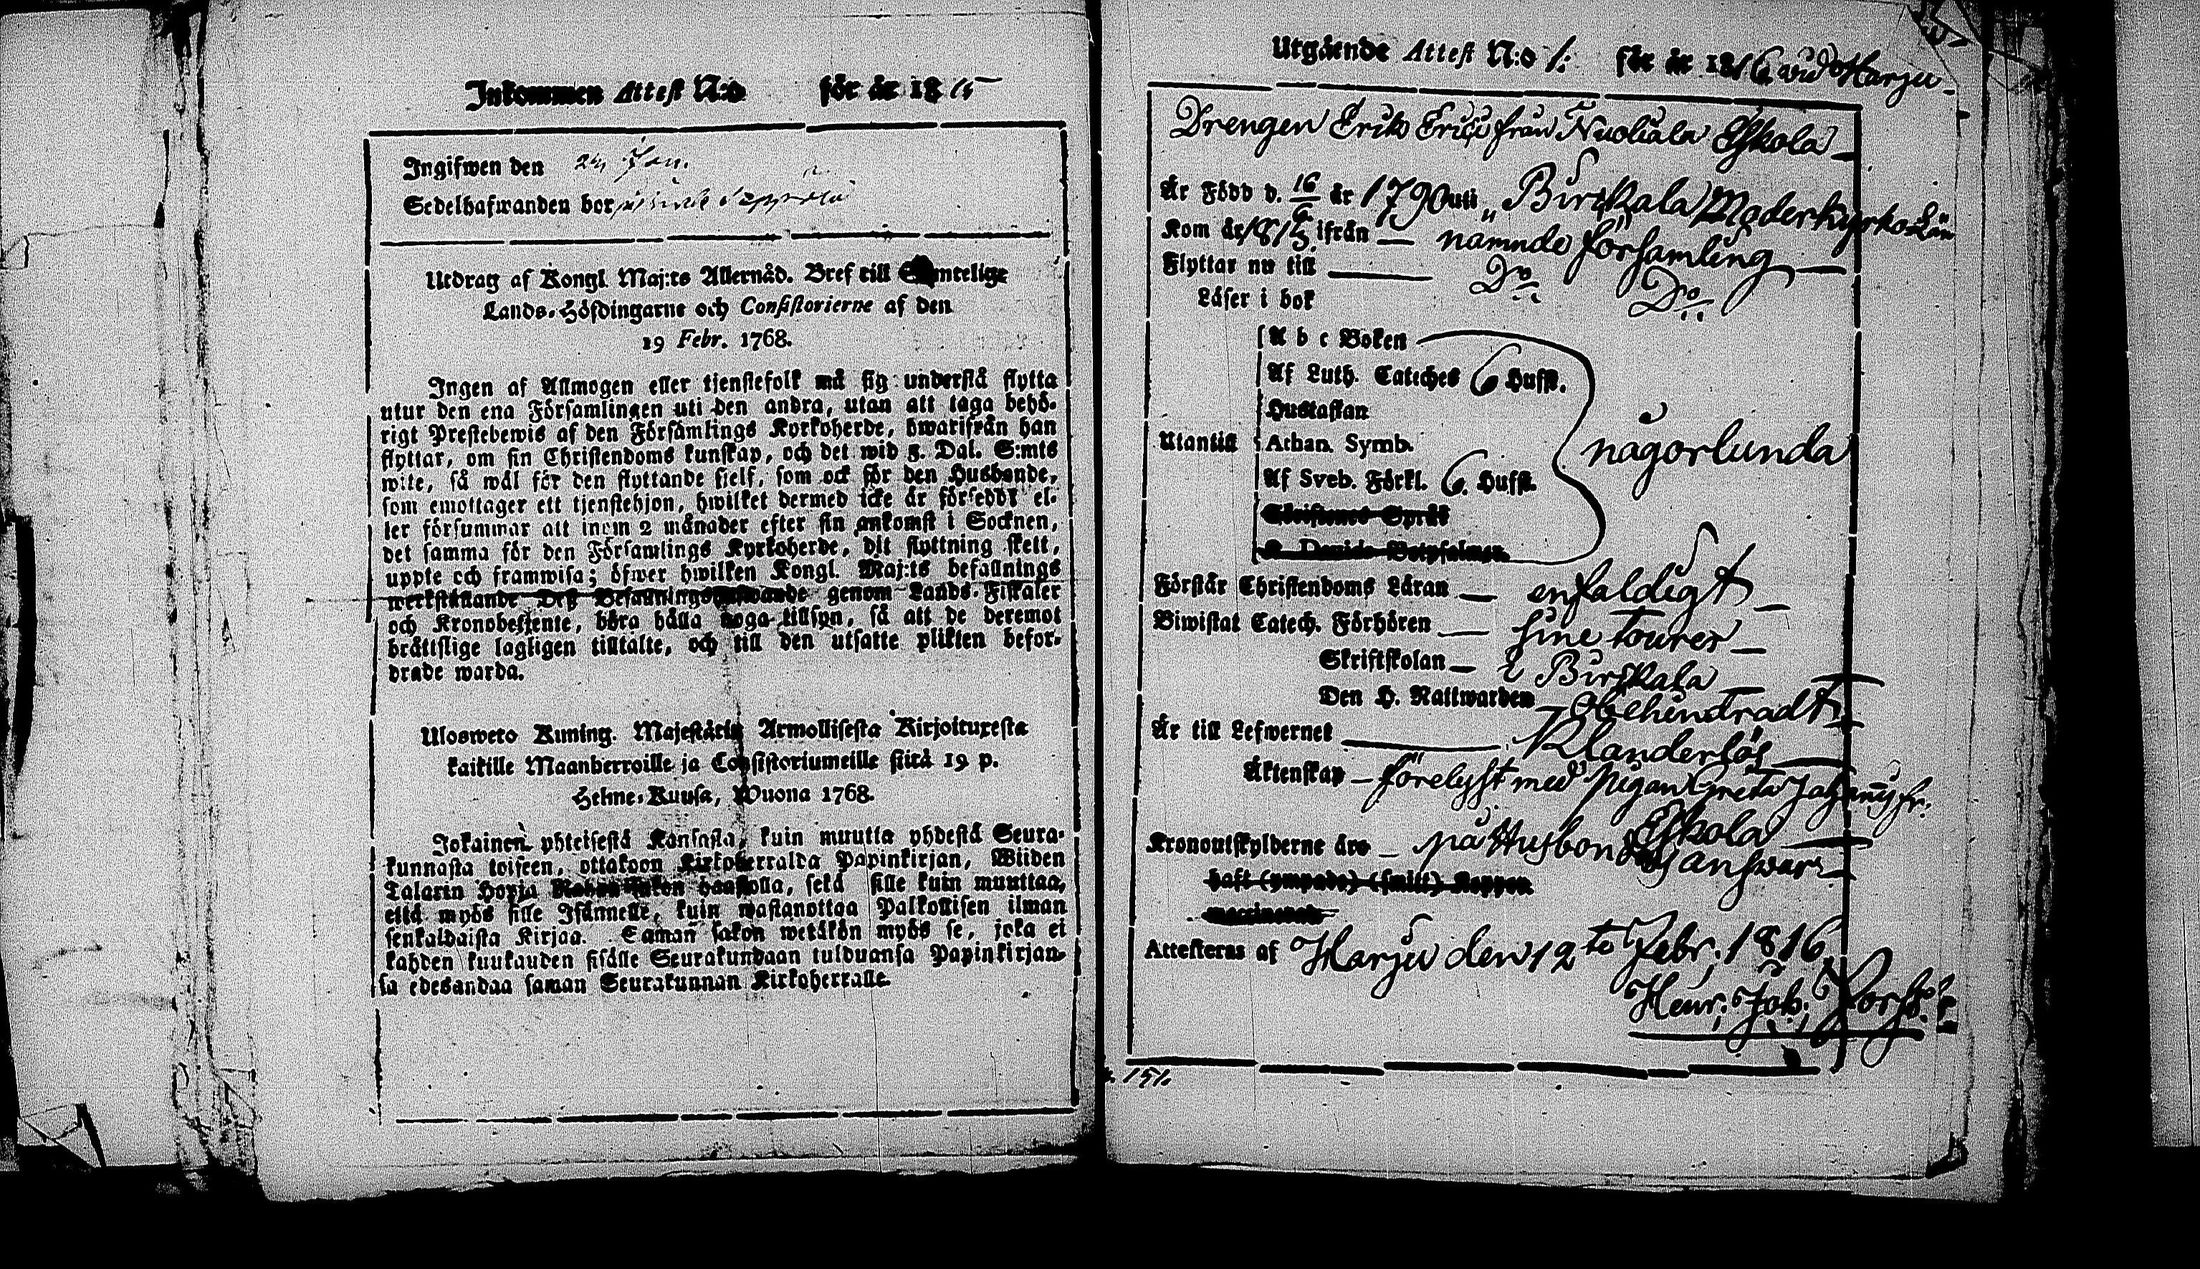 Inkommen Attest N:o för år 1815
Ingifwen den 24 Jan.
Sedelhafwanden bor
Utdrag af Kongl. Maj:ts Allernåd. Bref till Samtelige
Lands-Höfdingarne och Consistorierne af den
19 Febr. 1768.
Ingen af Allmogen eller tjenstefolk må sig understå flytta
utur den ena Församlingen uti den andra, utan att taga behö-
rigt Prestebewis af den Församlings Kyrkoherde, hwarifrån han
flyttar, om sin Christendoms kunskap, och det wid 5. Dal. S:mts
wite, så wäl för den flyttande sielf, som ock för den Husbonde,
som emottager ett tjenstehjon, hwilket dermed icke är försedt el-
ler försummar att inom 2 månader efter sin ankomst i Socknen,
det samma för den Församlings Kyrkoherde, dit flyttning skett,
uppte och framwisa; öfwer hwilken Kongl. Maj:ts befallnings
werkställande Desz Befallningshafwande genom Lands-Fiskaler
och Kronobetjente, böra hålla noga tillsyn, så att de deremot
bråttslige lagligen tilltalte, och till den utsatte plikten befor-
drade warda.
Ulosweto Kuning. Majestätin Armollisesta Kirjoituxesta
kaikille Maanherroille ja Consistoriumeille siitä 19 p.
Helme-Kuusa, Wuona 1768.
Jokainen yhteisestä Kansasta, kuin muutta yhdestä Seura-
kunnasta toiseen, ottakoon Kirkoherralda Papinkirjan, Wiiden
Talarin Hopia Rahan sakon haastolla, sekä sille kuin muuttaa,
että myös sille Isännelle, kuin wastanottaa Palkollisen ilman
senkaldaista Kirjaa. Saman sakon wetäkön myös se, joka ei
kahden kuukauden sisälle Seurakundaan tulduansa Papinkirjan-
sa edesandaa saman Seurakunnan Kirkoherralle.
Utgående Attest N:o 1: för år 1816 wid Harju
Drengen Erik Ericss från Nuoliala Eskola
Är Född d. 16/6 år 1790 uti Birkala Moderkyrko Län
Kom år 1815 ifrån namnde församling
Flyttar nu till Do Do
Läser i bok
Utantill
A b c Boken
Af Luth. Catches 6 Hufst.
Hustaflan
Athan. Symb.
Af Sveb. Förkl. 6. Hufst.
någorlunda
Förstår Christendoms Läran enfaldigt
Biwistat Catech. Förhören sine tourer
Skriftskolan i Birkala
Den H. Nattwarden obehindradt
Är till Lefwernet Klanderlös
Äktenskap förelyst med Pigan Greta fr.
Eskola
Kronoutskylderne äro på Husbondes answar
Attesteras af Harju den 12te Febr. 1816
Henr. Joh.
151.